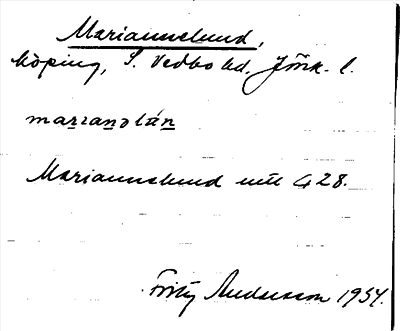 Mariannelund,
köping, S. Vedbo hd, Jönk. l.
marıanəlún
Mariannelund mtl G 28.
Fritz Andersson 1934.